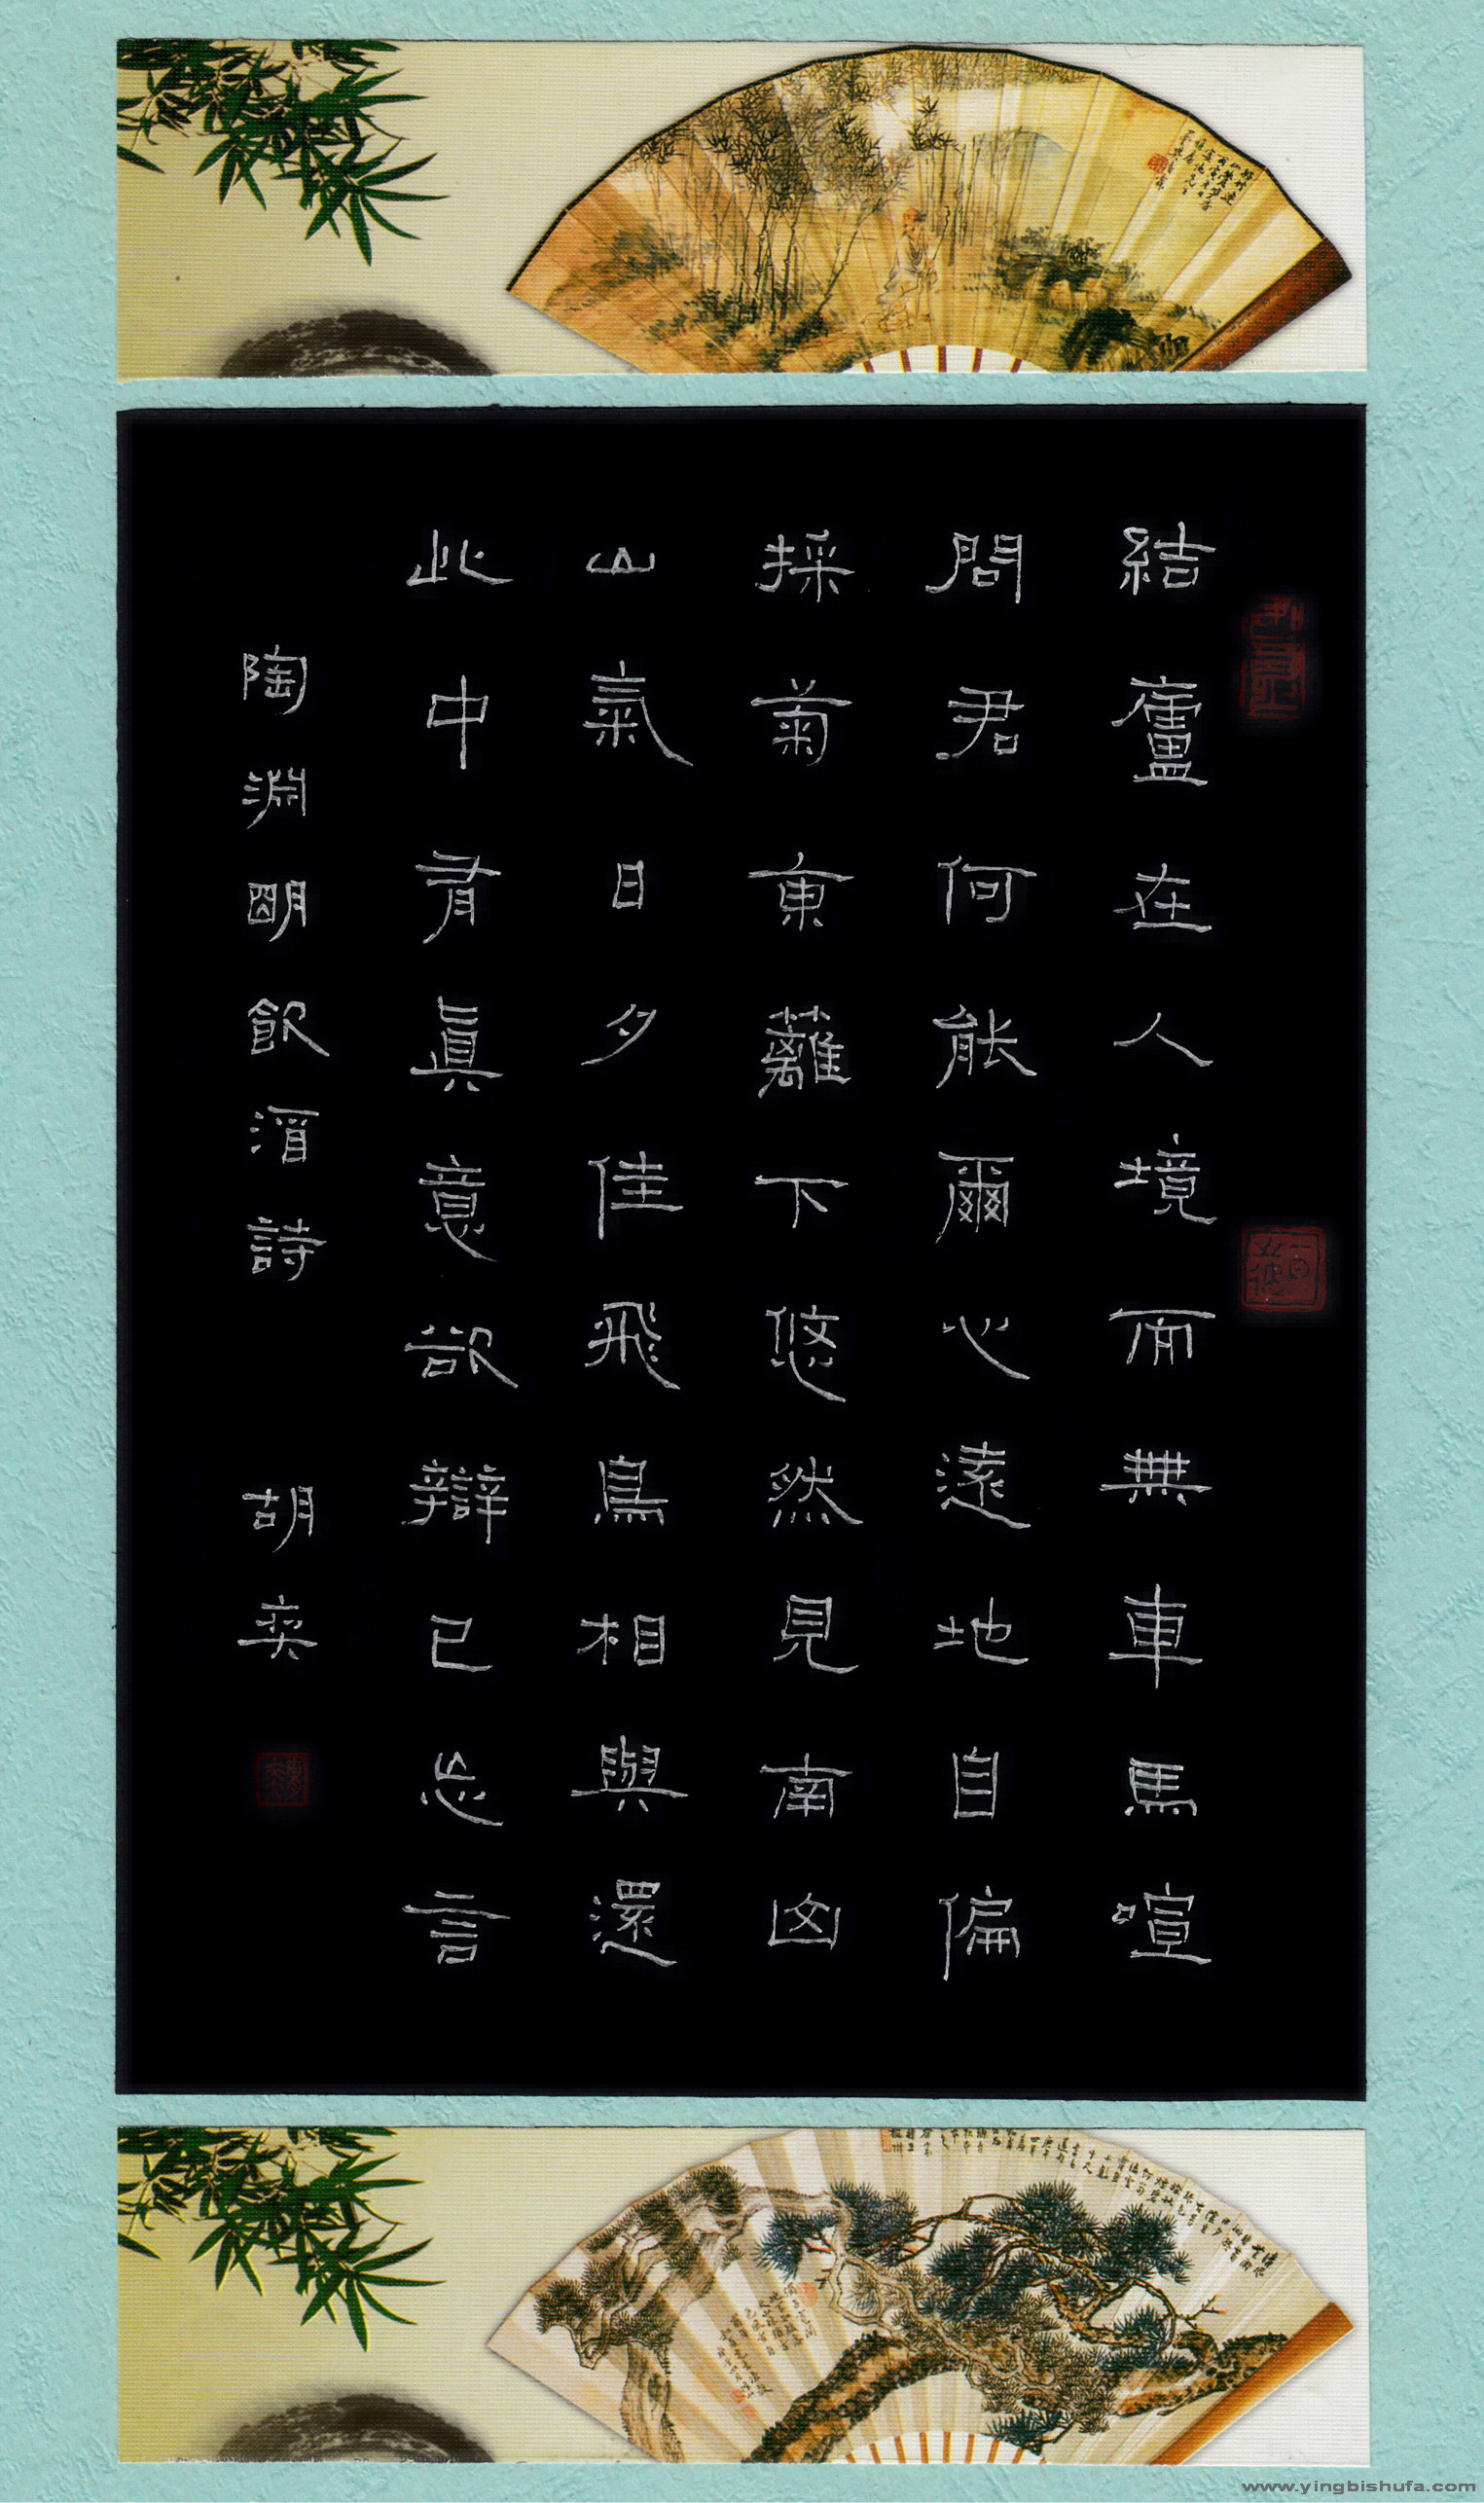 結廬在人境而無車馬喧
問君何能爾心遠地自偏
採菊東蘺下悠然見南凶
山氣日夕佳飛鳥相與還
此中有眞意欲辯已忘言
陶淵明飲酒詩 胡奕
www.yingbishufa.com